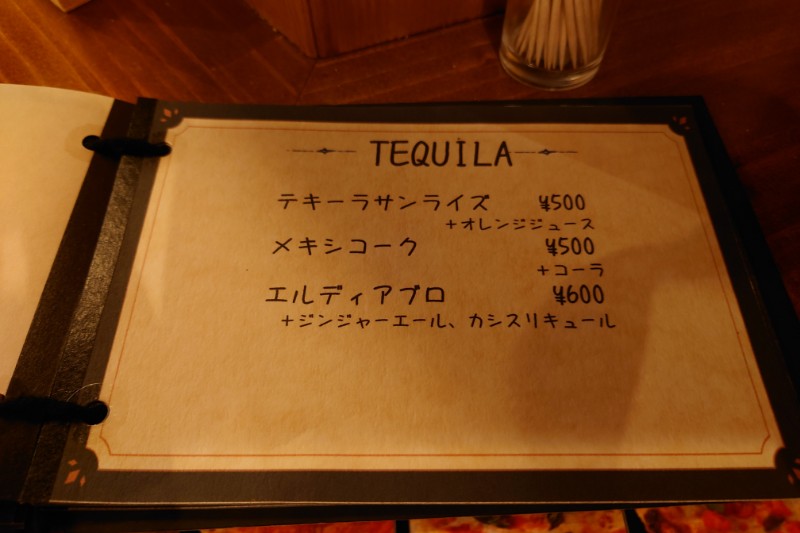 TEQUILA
テキーラサンライズ ¥500
+オレンジジュース
メキシコーク ¥500
+コーラ
エルディアブロ ¥600
+ジンジャーエール、カシスリキュール